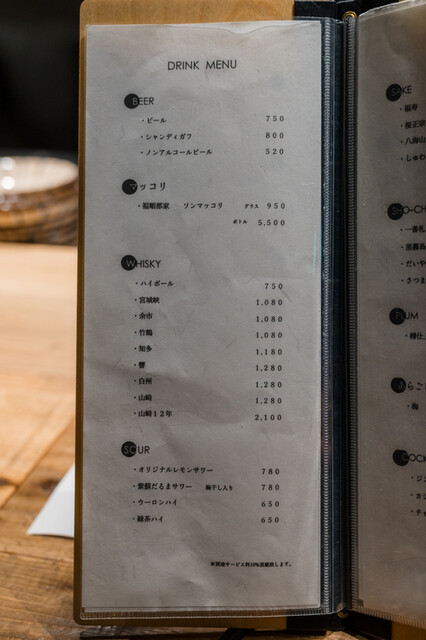 DRINK MENU
BEER
・ビール 750
・シャンディガフ 800
・ノンアルコールビール 520
マッコリ
・福順都家 ソンマッコリ グラス 950
ボトル 5,500
WHISKY
・ハイボール 750
・宮城峡 1,080
・余市 1,080
・竹鶴 1,080
・知多 1,180
・響 1,280
・白州 1,280
・山崎 1,280
・山崎12年 2,100
SOUR
・オリジナルレモンサワー 780
・紫蘇だるまサワー 梅干し入り 780
・ウーロンハイ 650
・緑茶ハイ 650
※別途サービス料10%頂戴致します。
SAKE
・福寿
・桜正宗
・八海山
・しゅわ
SHO-CH
・一番札
・黒霧島
・だいや
・さつま
PLUM
・樽仕
あらご
・梅
COCK
・ジン
・カシ
・チャ